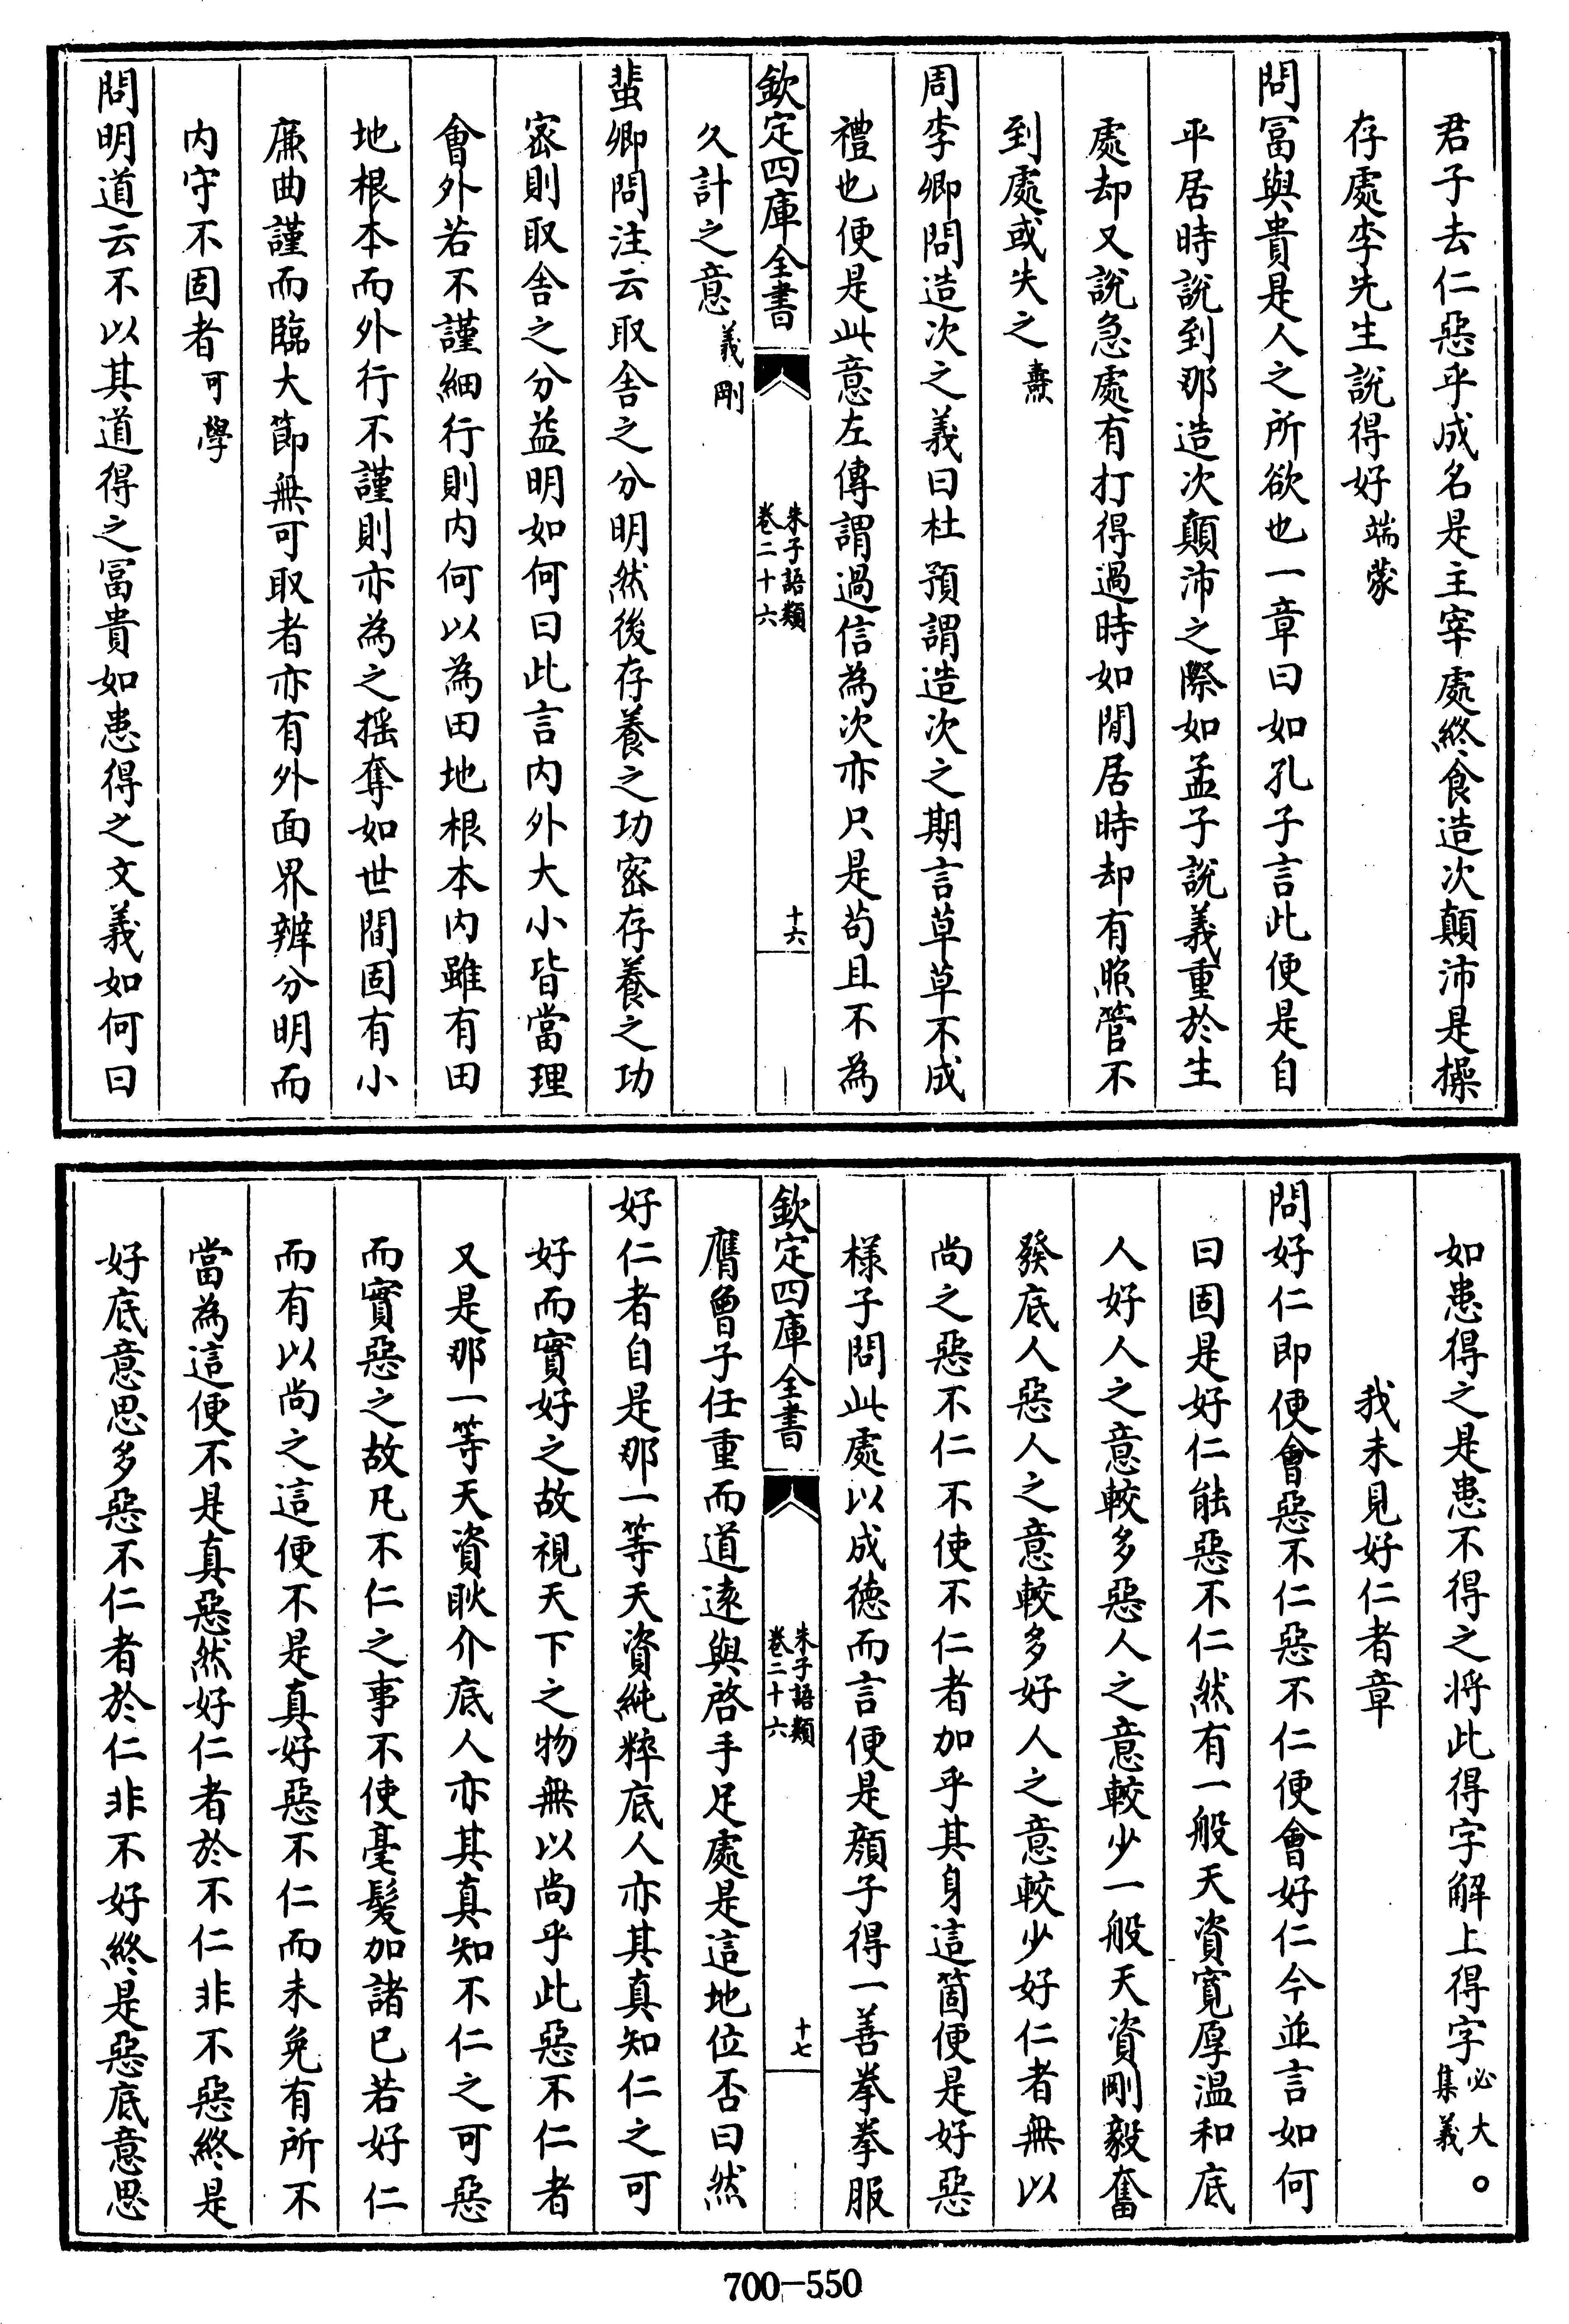 君子去仁惡乎成名是主宰處終食造次顛沛是操
存處李先生說得好端蒙
問冨與貴是人之所欲也一章曰如孔子言此便是自
平居時說到那造次顛沛之際如孟子說義重於生
處却又說急處有打得過時如閒居時却有照管不
到處或失之燾
周李卿問造次之義曰杜預謂造次之期言草草不成
禮也便是此意左傳謂過信為次亦只是苟且不為
欽定四庫全書
朱子語類
卷二十六
十六
久計之意義剛
蜚卿問注云取舍之分明然後存養之功密存養之功
密則取舍之分益明如何曰此言内外大小皆當理
會外若不謹細行則内何以為田地根本内雖有田
地根本而外行不謹則亦為之摇奪如世間固有小
廉曲謹而臨大節無可取者亦有外面界辨分明而
内守不固者可學
問明道云不以其道得之冨貴如患得之文義如何曰
如患得之是患不得之将此得字解上得字必大
集義。
我未見好仁者章
問好仁即便會惡不仁惡不仁便會好仁今並言如何
曰固是好仁能惡不仁然有一般天資寛厚温和底
人好人之意較多惡人之意較少一般天資剛毅奮
發底人惡人之意較多好人之意較少好仁者無以
尚之惡不仁不使不仁者加乎其身這箇便是好惡
樣子問此處以成德而言便是顔子得一善拳拳服
欽定四庫全書
朱子語類
卷二十六
十七
膺曾子任重而道逺與啓手足處是這地位否曰然
好仁者自是那一等天資純粹底人亦其真知仁之可
好而實好之故視天下之物無以尚乎此惡不仁者
又是那一等天資耿介底人亦其真知不仁之可惡
而實惡之故凡不仁之事不使毫髮加諸已若好仁
而有以尚之這便不是真好惡不仁而未免有所不
當為這便不是真惡然好仁者於不仁非不惡終是
好底意思多惡不仁者於仁非不好終是惡底意思
700-550